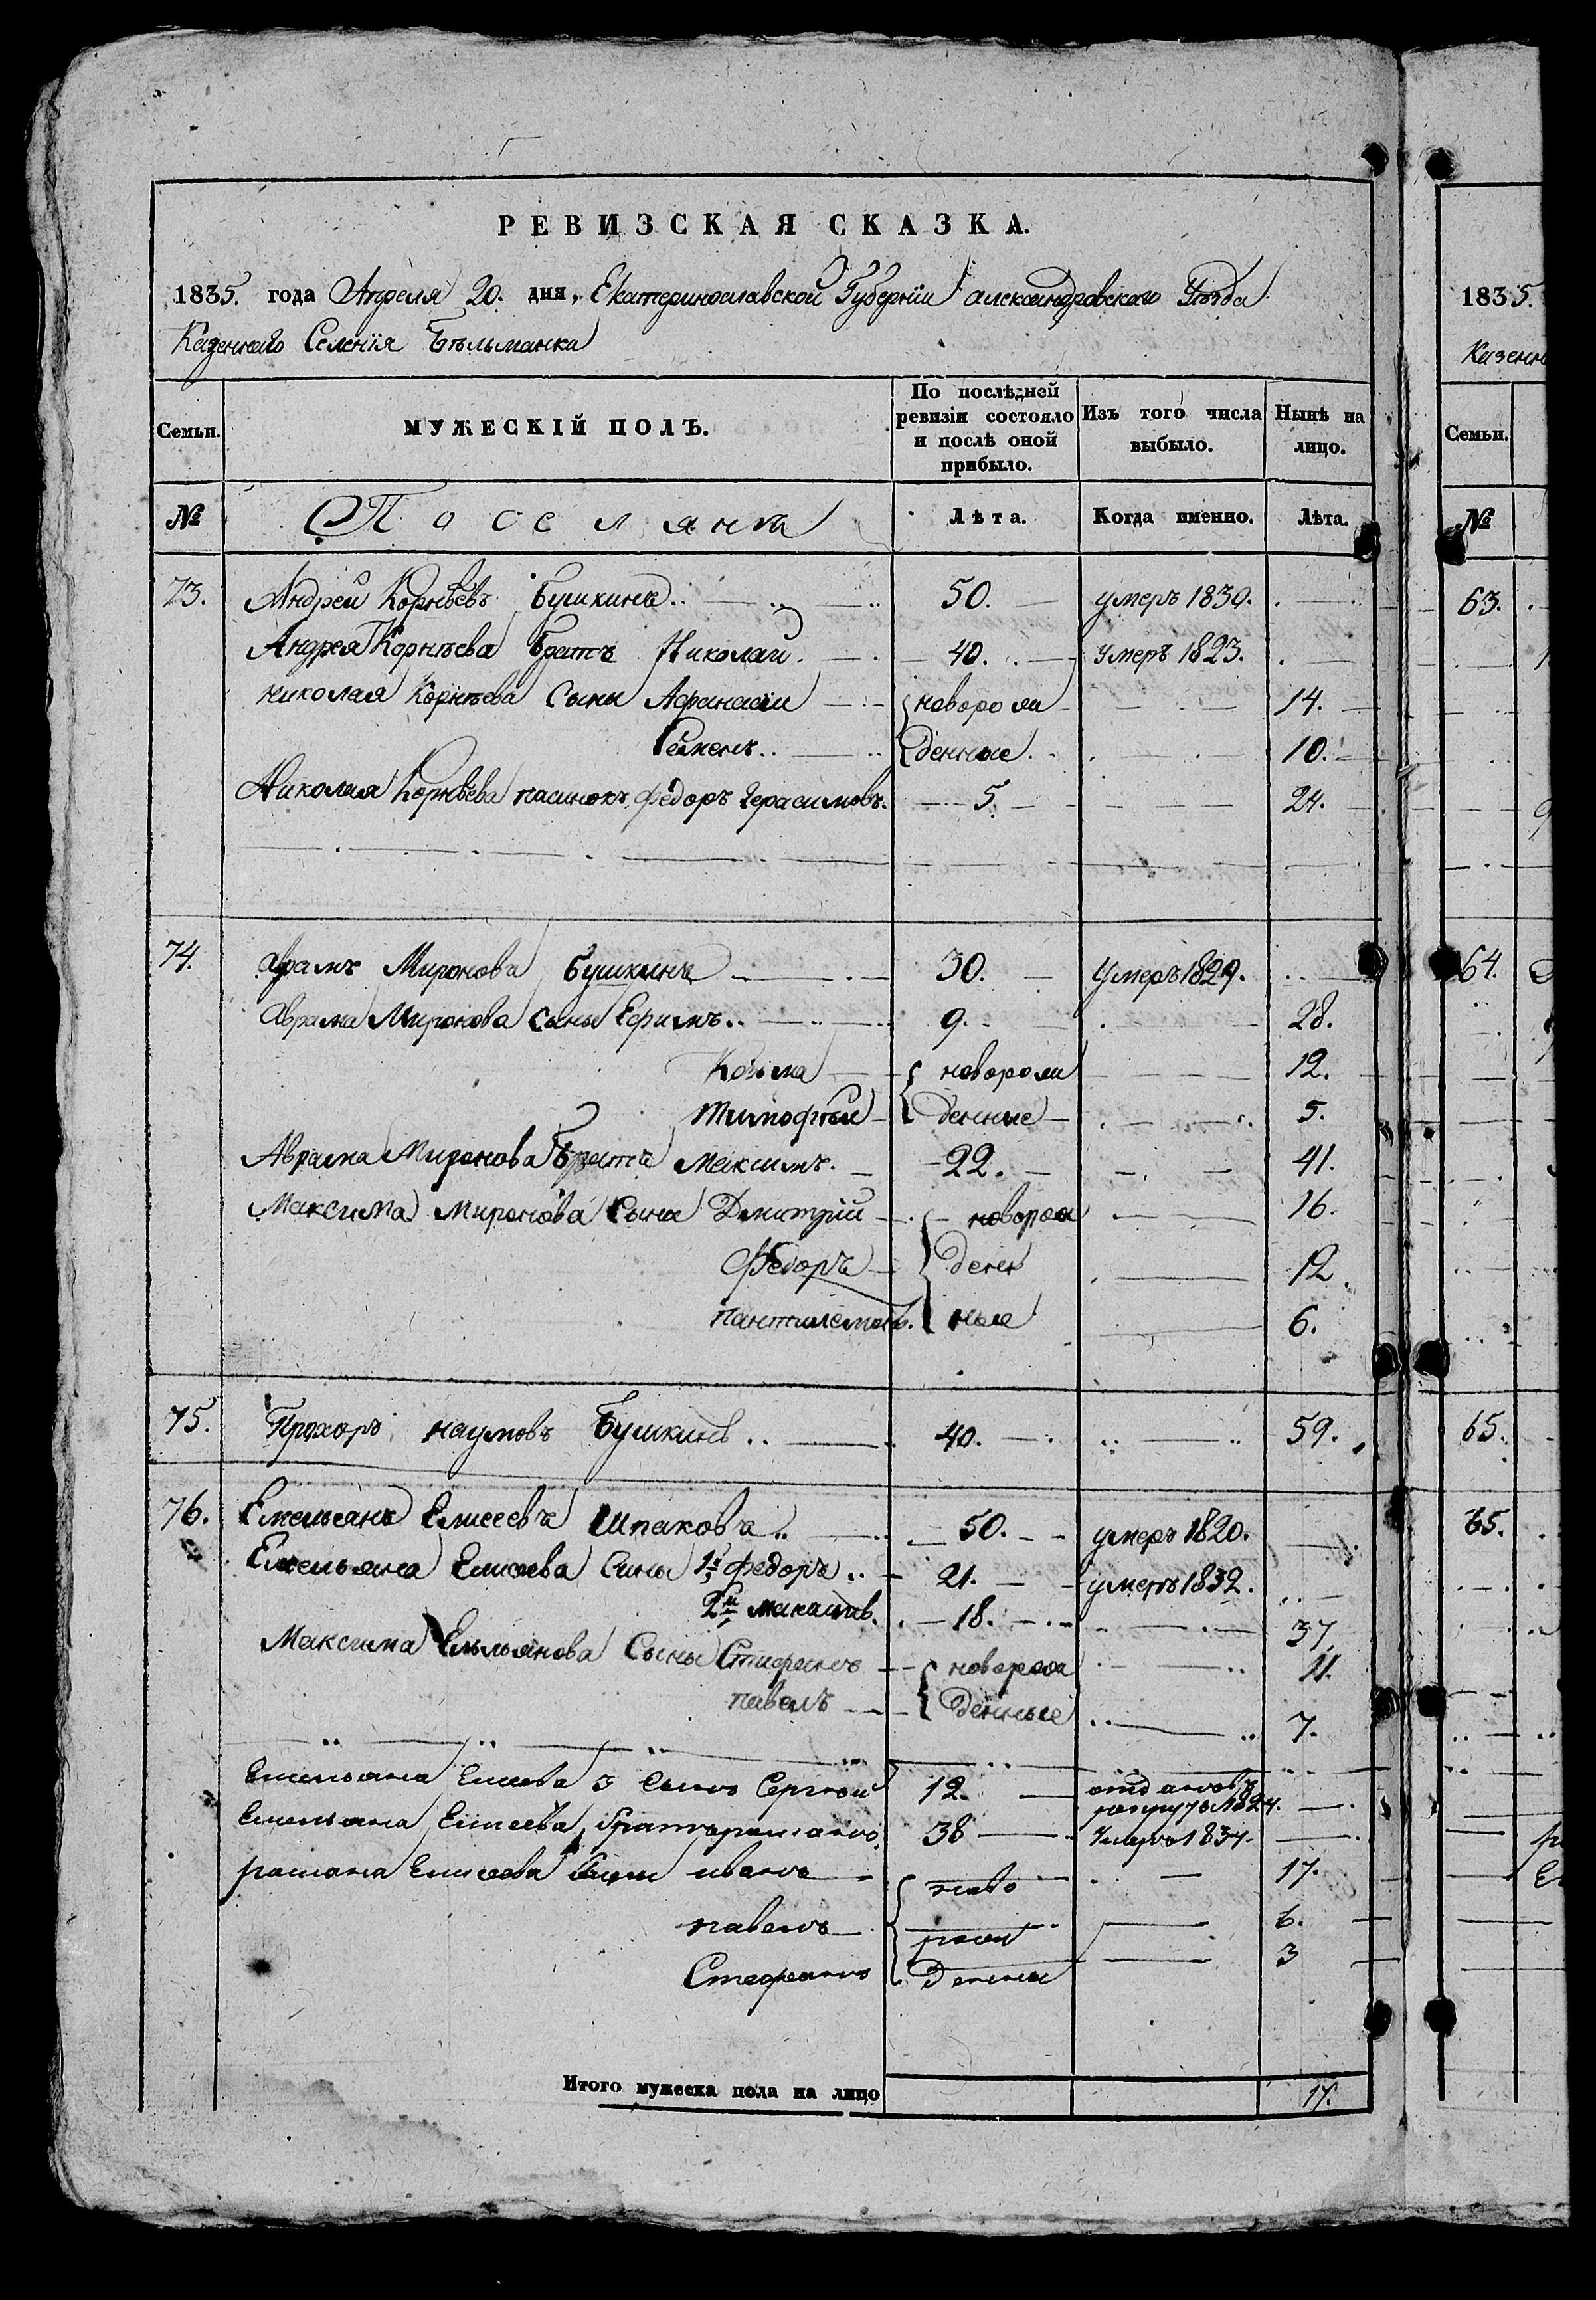 РЕВИЗСКАЯ СКАЗКА.
1835. года Апреля 20. дня, Екатеринославской Губерніи александровскаго Уезда
Казеннаго Селенія Бѣльманки
Семьи. МУЖЕСКІЙ ПОЛЪ. По послѣдней ревизіи состояло и послѣ оной прибыло. Изъ того числа выбыло. Нынѣ на лицо.
№ Поселяна Лѣта. Когда именно. Лѣта.
73. Андрей Корнѣевъ Бушкинъ 50. умеръ 1830.
Андрея Корнѣева братъ Николай. 40. умеръ 1823.
николая Корнѣева Сыны Афанасий новорож 14.
Семенъ денные 10.
Николая Корнѣева пасинокъ федоръ Герасимовъ. 5. 24.
74. Миронова бушкинъ 30. Умеръ 1829.
Аврама Миронова сыны Ефимъ 9. 28.
Козьма новорож 12.
тимофѣй денные 5.
Аврама Миронова братъ максимъ. 22. 41.
Максима миронова Сыны Дмитрій новорож 16.
Федоръ ден 12.
пантилемонъ. ные 6.
75. Прохоръ наумовъ Бушкинъ 40. 59.
76. Емельянъ Елисеевъ Шпаковъ 50. умеръ 1820.
Емельяна Елисеева Сыны 1й федоръ 21. умеръ 1832.
2й максимъ. 18. 37.
Максима Емельянова Сыны Стефанъ новорож 11.
павелъ денные 7.
Емельяна Елисеева 3 сынъ Сергѣй 12. отданъ въ рекруты 1824.
Емельяна Елисеева братъ романъ 38 Умеръ 1834.
романа Елисеева сыны иванъ ново 17.
павелъ рож 6.
Стефанъ денны 3
Итого мужеска пола на лицо 17.
1835.
Казенн
Семьи.
№
63.
64.
65.
65.